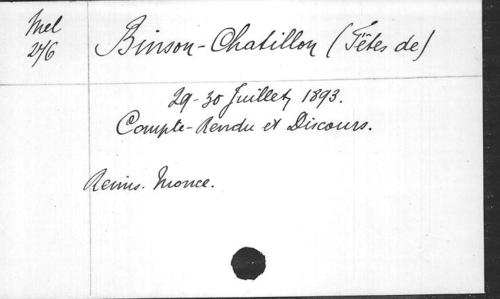 Mel
276
Binson-Chatillon (Fêtes de)
29-30 Juillet, 1893.
Compte-Rendu et Discours.
Reims. Monce.